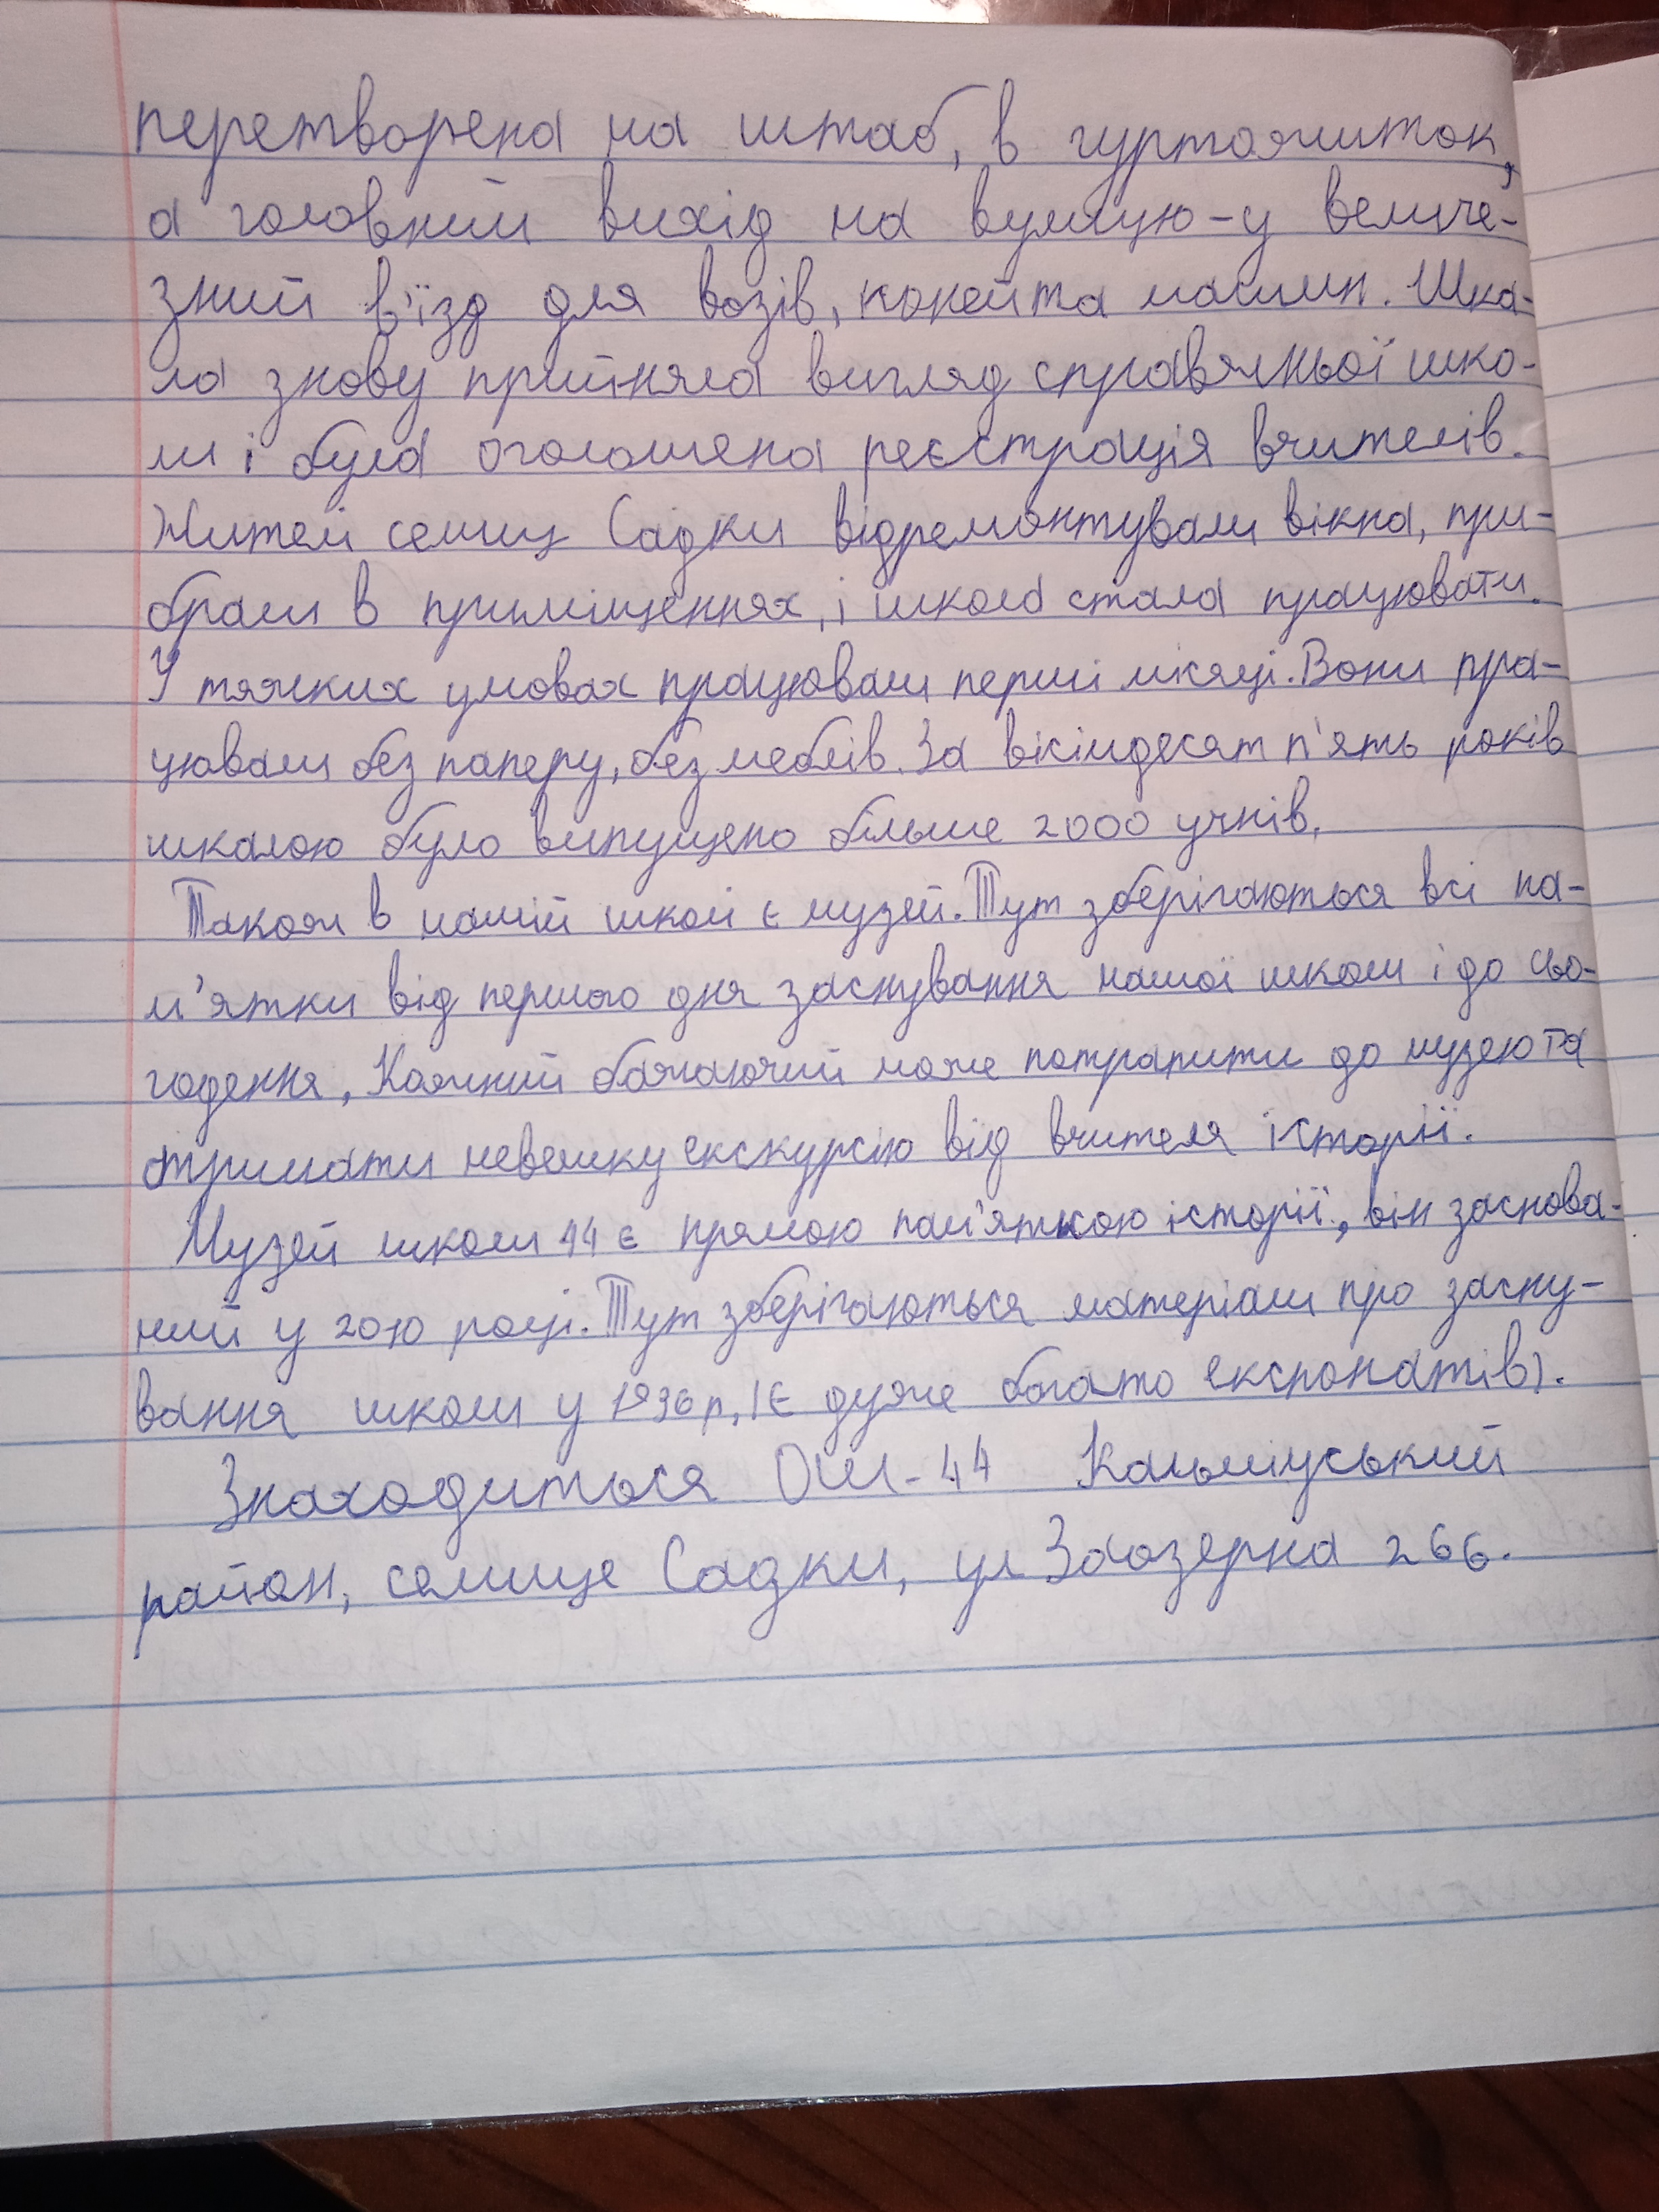 перетворена на штаб, в гуртожиток,
а головний вихід на вулицю-у величе-
зний в'їзд для возів, коней та машин. Шко-
ла знову прийняла вигляд справжньої шко-
ли і була оголошена реєстрація вчителів.
Жителі селищ Садки відремонтували вікна, при-
брали в приміщеннях, і школа стала працювати.
У тяжких умовах працювали перші місяці. Вони пра-
цювали без паперу, без меблів. За вісімдесят п'ять років
школою було випущено більше 2000 учнів.
Також в нашій школі є музей. Тут зберігаються всі па-
м'ятки від першого дня заснування нашої школи і до сьо-
годення, Кожний бажаючий може потрапити до музею та
отримати невелику екскурсію від вчителя історії.
Музей школи 44 є прямою пам'яткою історії, він заснова-
ний у 2010 році. Тут зберігаються матеріали про засну-
вання школи у 1936р. (Є дуже багато експонатів).
Знаходиться ОШ-44 Кальміуський
район, селище Садки, ул Заозерна 266.